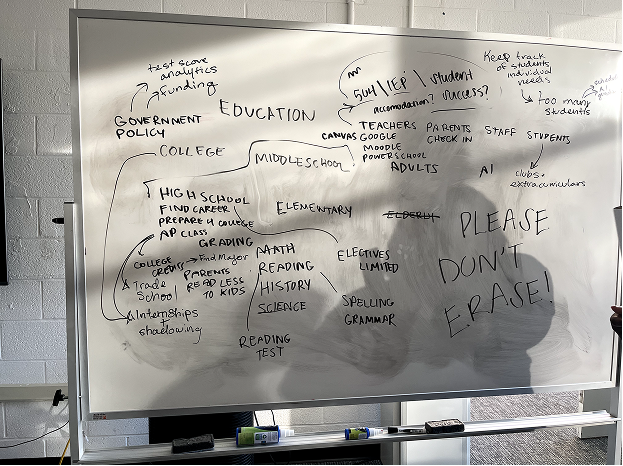 test score
analytics
funding
GOVERNMENT
POLICY
EDUCATION
504 / IEP \ student
accomodation? success?
Keep track
of students
individual
needs
too many
students
TEACHERS
CANVAS GOOGLE
MOODLE
POWERSCHOOL
PARENTS
CHECK IN
STAFF
STUDENTS
clubs +
extracurriculars
ADULTS
AI
COLLEGE
MIDDLE SCHOOL
HIGH SCHOOL
FIND CAREER
PREPARE 4 COLLEGE
AP CLASS
GRADING
ELEMENTARY
ELDERLY
PLEASE
DON'T
ERASE!
COLLEGE
CREDITS
Find Major
Trade
School
PARENTS
READ LESS
TO KIDS
Internships
+
shadowing
MATH
READING
HISTORY
SCIENCE
READING
TEST
ELECTIVES
LIMITED
SPELLING
GRAMMAR